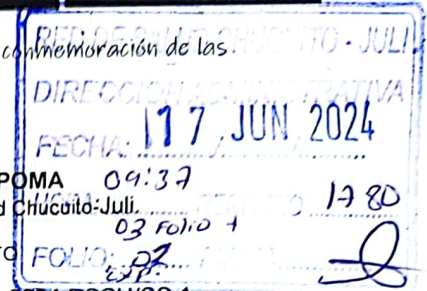 conmemoración de las
RED DE SALUD CHUCUITO - JULI
DIRECCION ADMINISTRATIVA
FECHA: 17 JUN 2024
POMA 09:37
d Chucuito-Juli. 1780
03 Folio +
TO FOLIO: 02